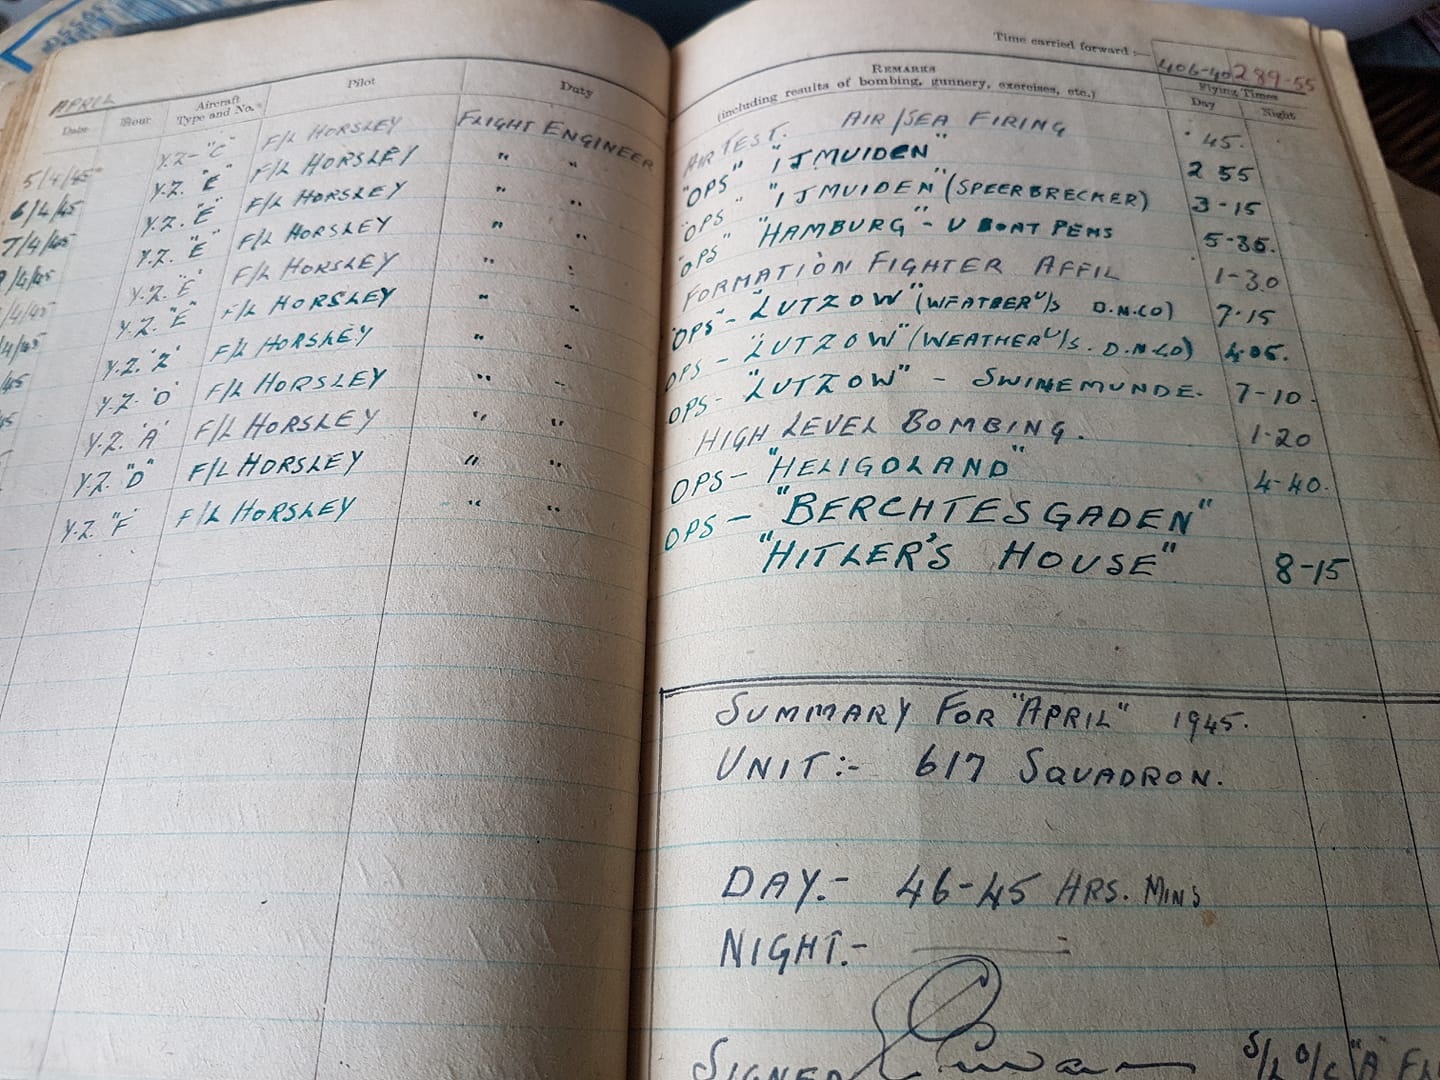 Time carried forward :—
406-40 289-55
APRIL
Date Hour Aircraft Type and No. Pilot Duty REMARKS (including results of bombing, gunnery, exercises, etc.) Flying Times Day Night
5/4/45 Y.Z- "C" F/L HORSLEY FLIGHT ENGINEER AIR TEST. AIR/SEA FIRING .45.
6/4/45 Y.Z. "E" F/L HORSLEY " " "OPS" "IJMUIDEN" 2 55
7/4/45 Y.Z. "E" F/L HORSLEY " " "OPS" "IJMUIDEN" (SPEERBRECKER) 3-15
9/4/45 Y.Z. "E" F/L HORSLEY " " "OPS" "HAMBURG" - U BOAT PENS 5-35.
/4/45 Y.Z. "E" F/L HORSLEY " " FORMATION FIGHTER AFFIL 1-30
/4/45 Y.Z. "E" F/L HORSLEY " " "OPS" - "LUTZOW" (WEATHER U/S D.N.CO) 7-15
/45 Y.Z. "Z" F/L HORSLEY " " OPS - "LUTZOW" (WEATHER U/S. D.N.CO) 4-05.
45 Y.Z. "D" F/L HORSLEY " " OPS - "LUTZOW" - SWINEMUNDE. 7-10.
Y.Z. 'A' F/L HORSLEY " " HIGH LEVEL BOMBING. 1-20
Y.Z. "D" F/L HORSLEY " " OPS - "HELIGOLAND" 4-40.
Y.Z. "F" F/L HORSLEY " " OPS - "BERCHTESGADEN"
"HITLER'S HOUSE" 8-15
SUMMARY FOR "APRIL" 1945.
UNIT:- 617 SQUADRON.
DAY.- 46-45 HRS. MINS
NIGHT.- —
SIGNED S/L O/C "A" FL